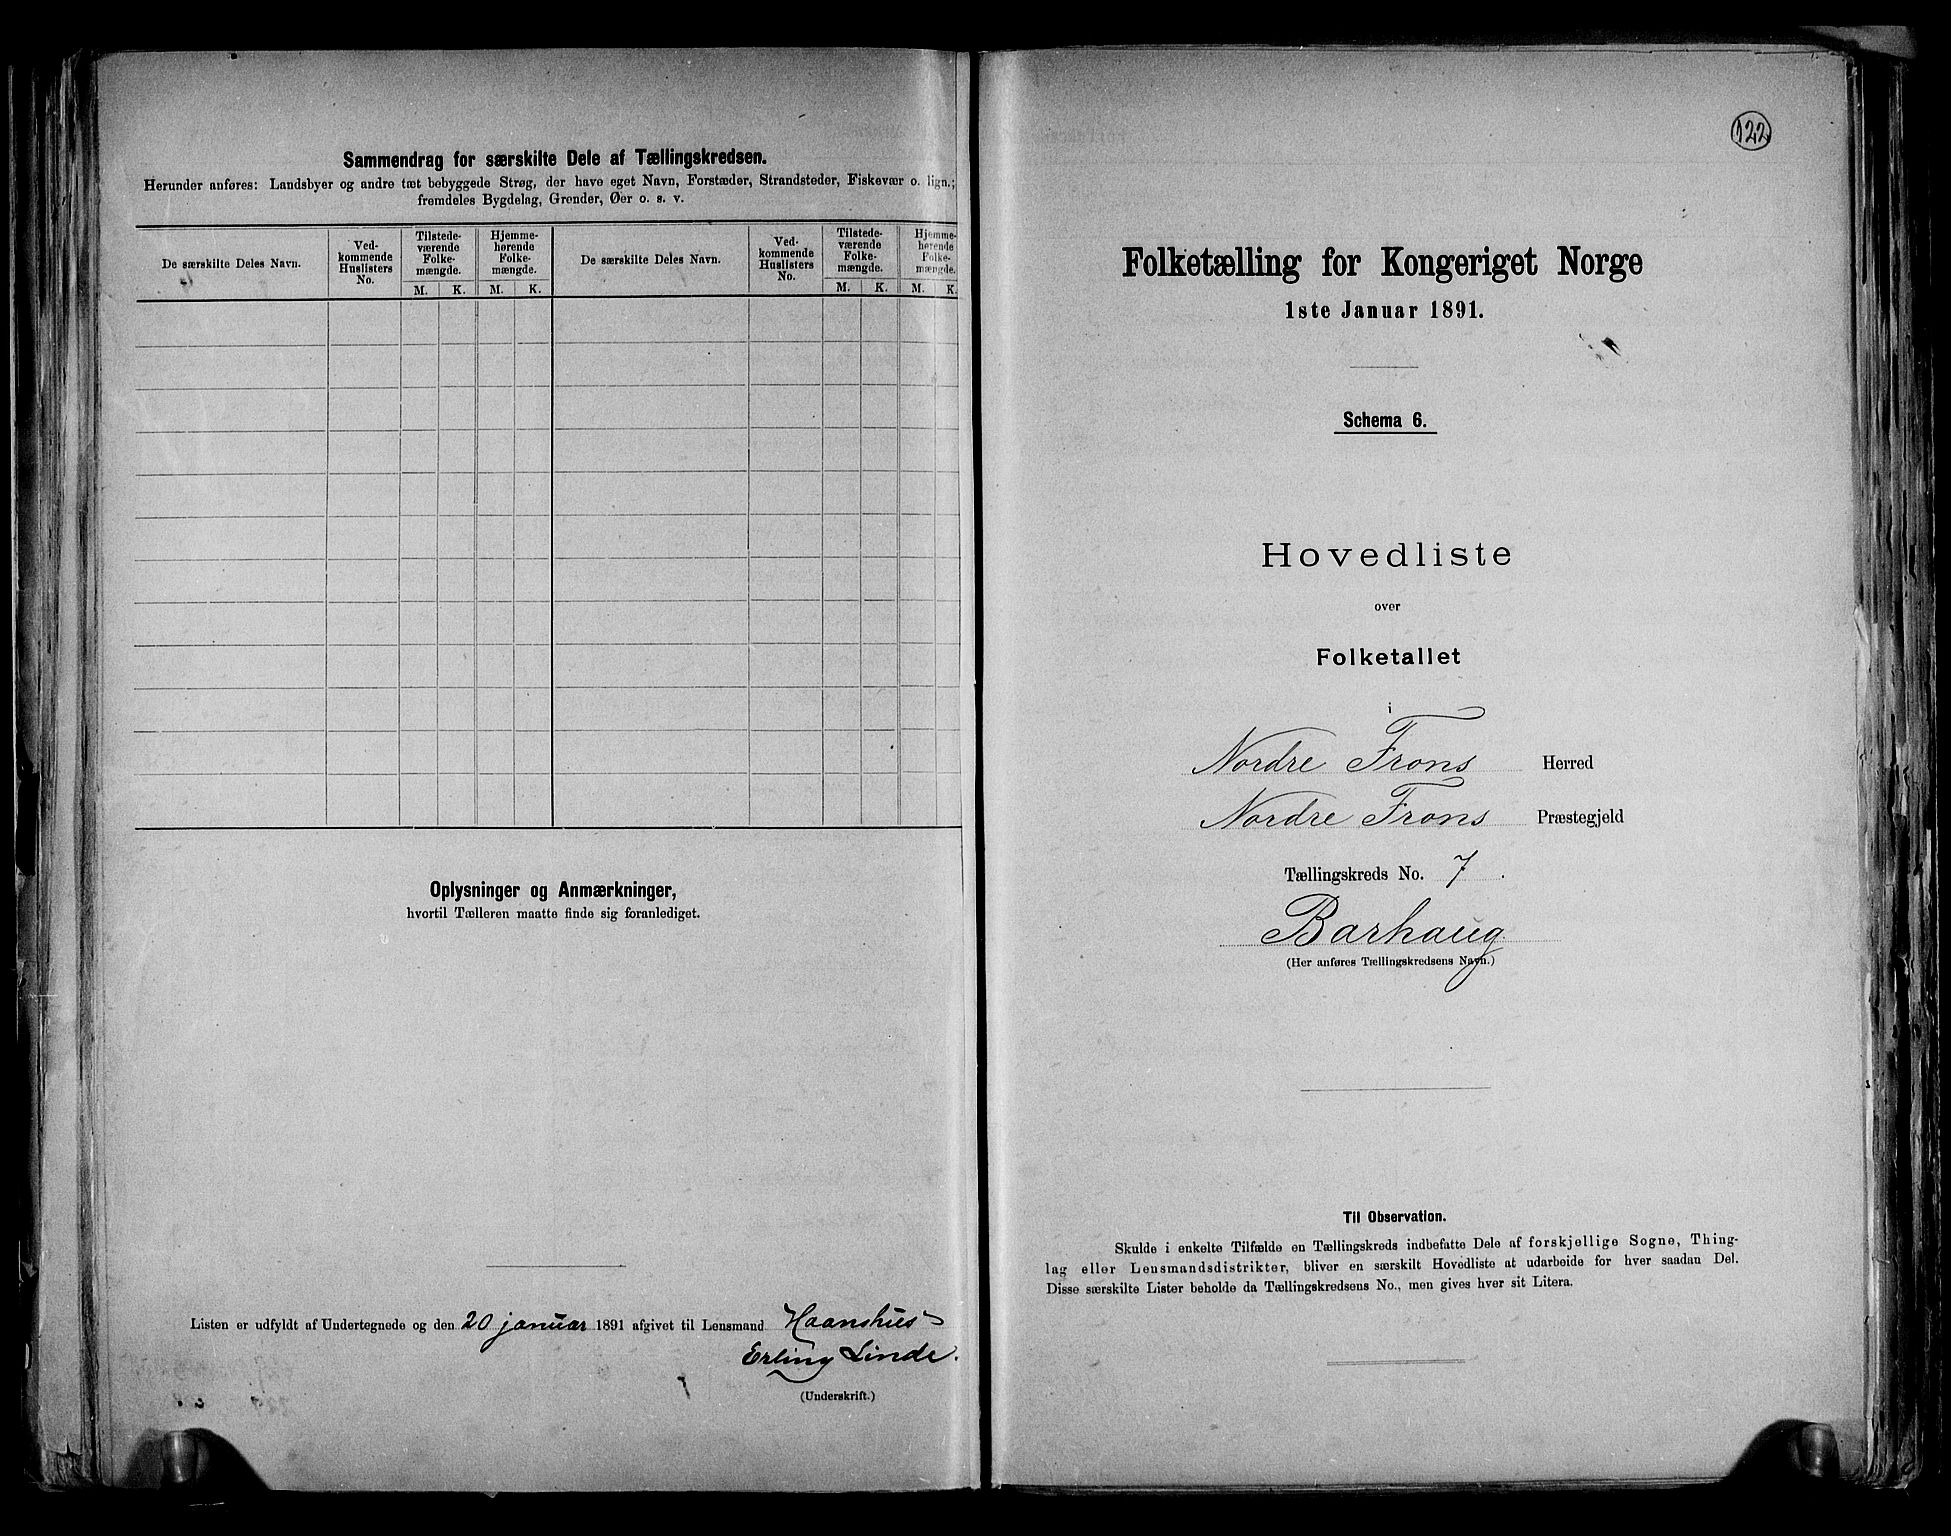 Sammendrag for særskilte Dele af Tællingskredsen.
Herunder anføres: Landsbyer og andre tæt bebyggede Strøg, der have eget Navn, Forstæder, Strandsteder, Fiskevær o. lign.;
fremdeles Bygdelag, Grender, Øer o. s. v.
De særskilte Deles Navn.
Ved-
kommende
Huslisters
No.
Tilstede-
værende
Folke-
mængde.
M. K.
Hjemme-
hørende
Folke-
mængde.
M. K.
De særskilte Deles Navn.
Ved-
kommende
Huslisters
No.
Tilstede-
værende
Folke-
mængde.
M. K.
Hjemme-
hørende
Folke-
mængde.
M. K.
Oplysninger og Anmærkninger,
hvortil Tælleren maatte finde sig foranlediget.
Listen er udfyldt af Undertegnede og den 20 januar 1891 afgivet til Lensmand Haanshus
Erling Linde.
(Underskrift.)
122
Folketælling for Kongeriget Norge
1ste Januar 1891.
Schema 6.
Hovedliste
over
Folketallet
i
Nordre Frons Herred
Nordre Frons Præstegjeld
Tællingskreds No. 7.
Barhaug
(Her anføres Tællingskredsens Navn.)
Til Observation.
Skulde i enkelte Tilfælde en Tællingskreds indbefatte Dele af forskjellige Sogne, Thing-
lag eller Lensmandsdistrikter, bliver en særskilt Hovedliste at udarbeide for hver saadan Del.
Disse særskilte Lister beholde da Tællingskredsens No., men gives hver sit Litera.